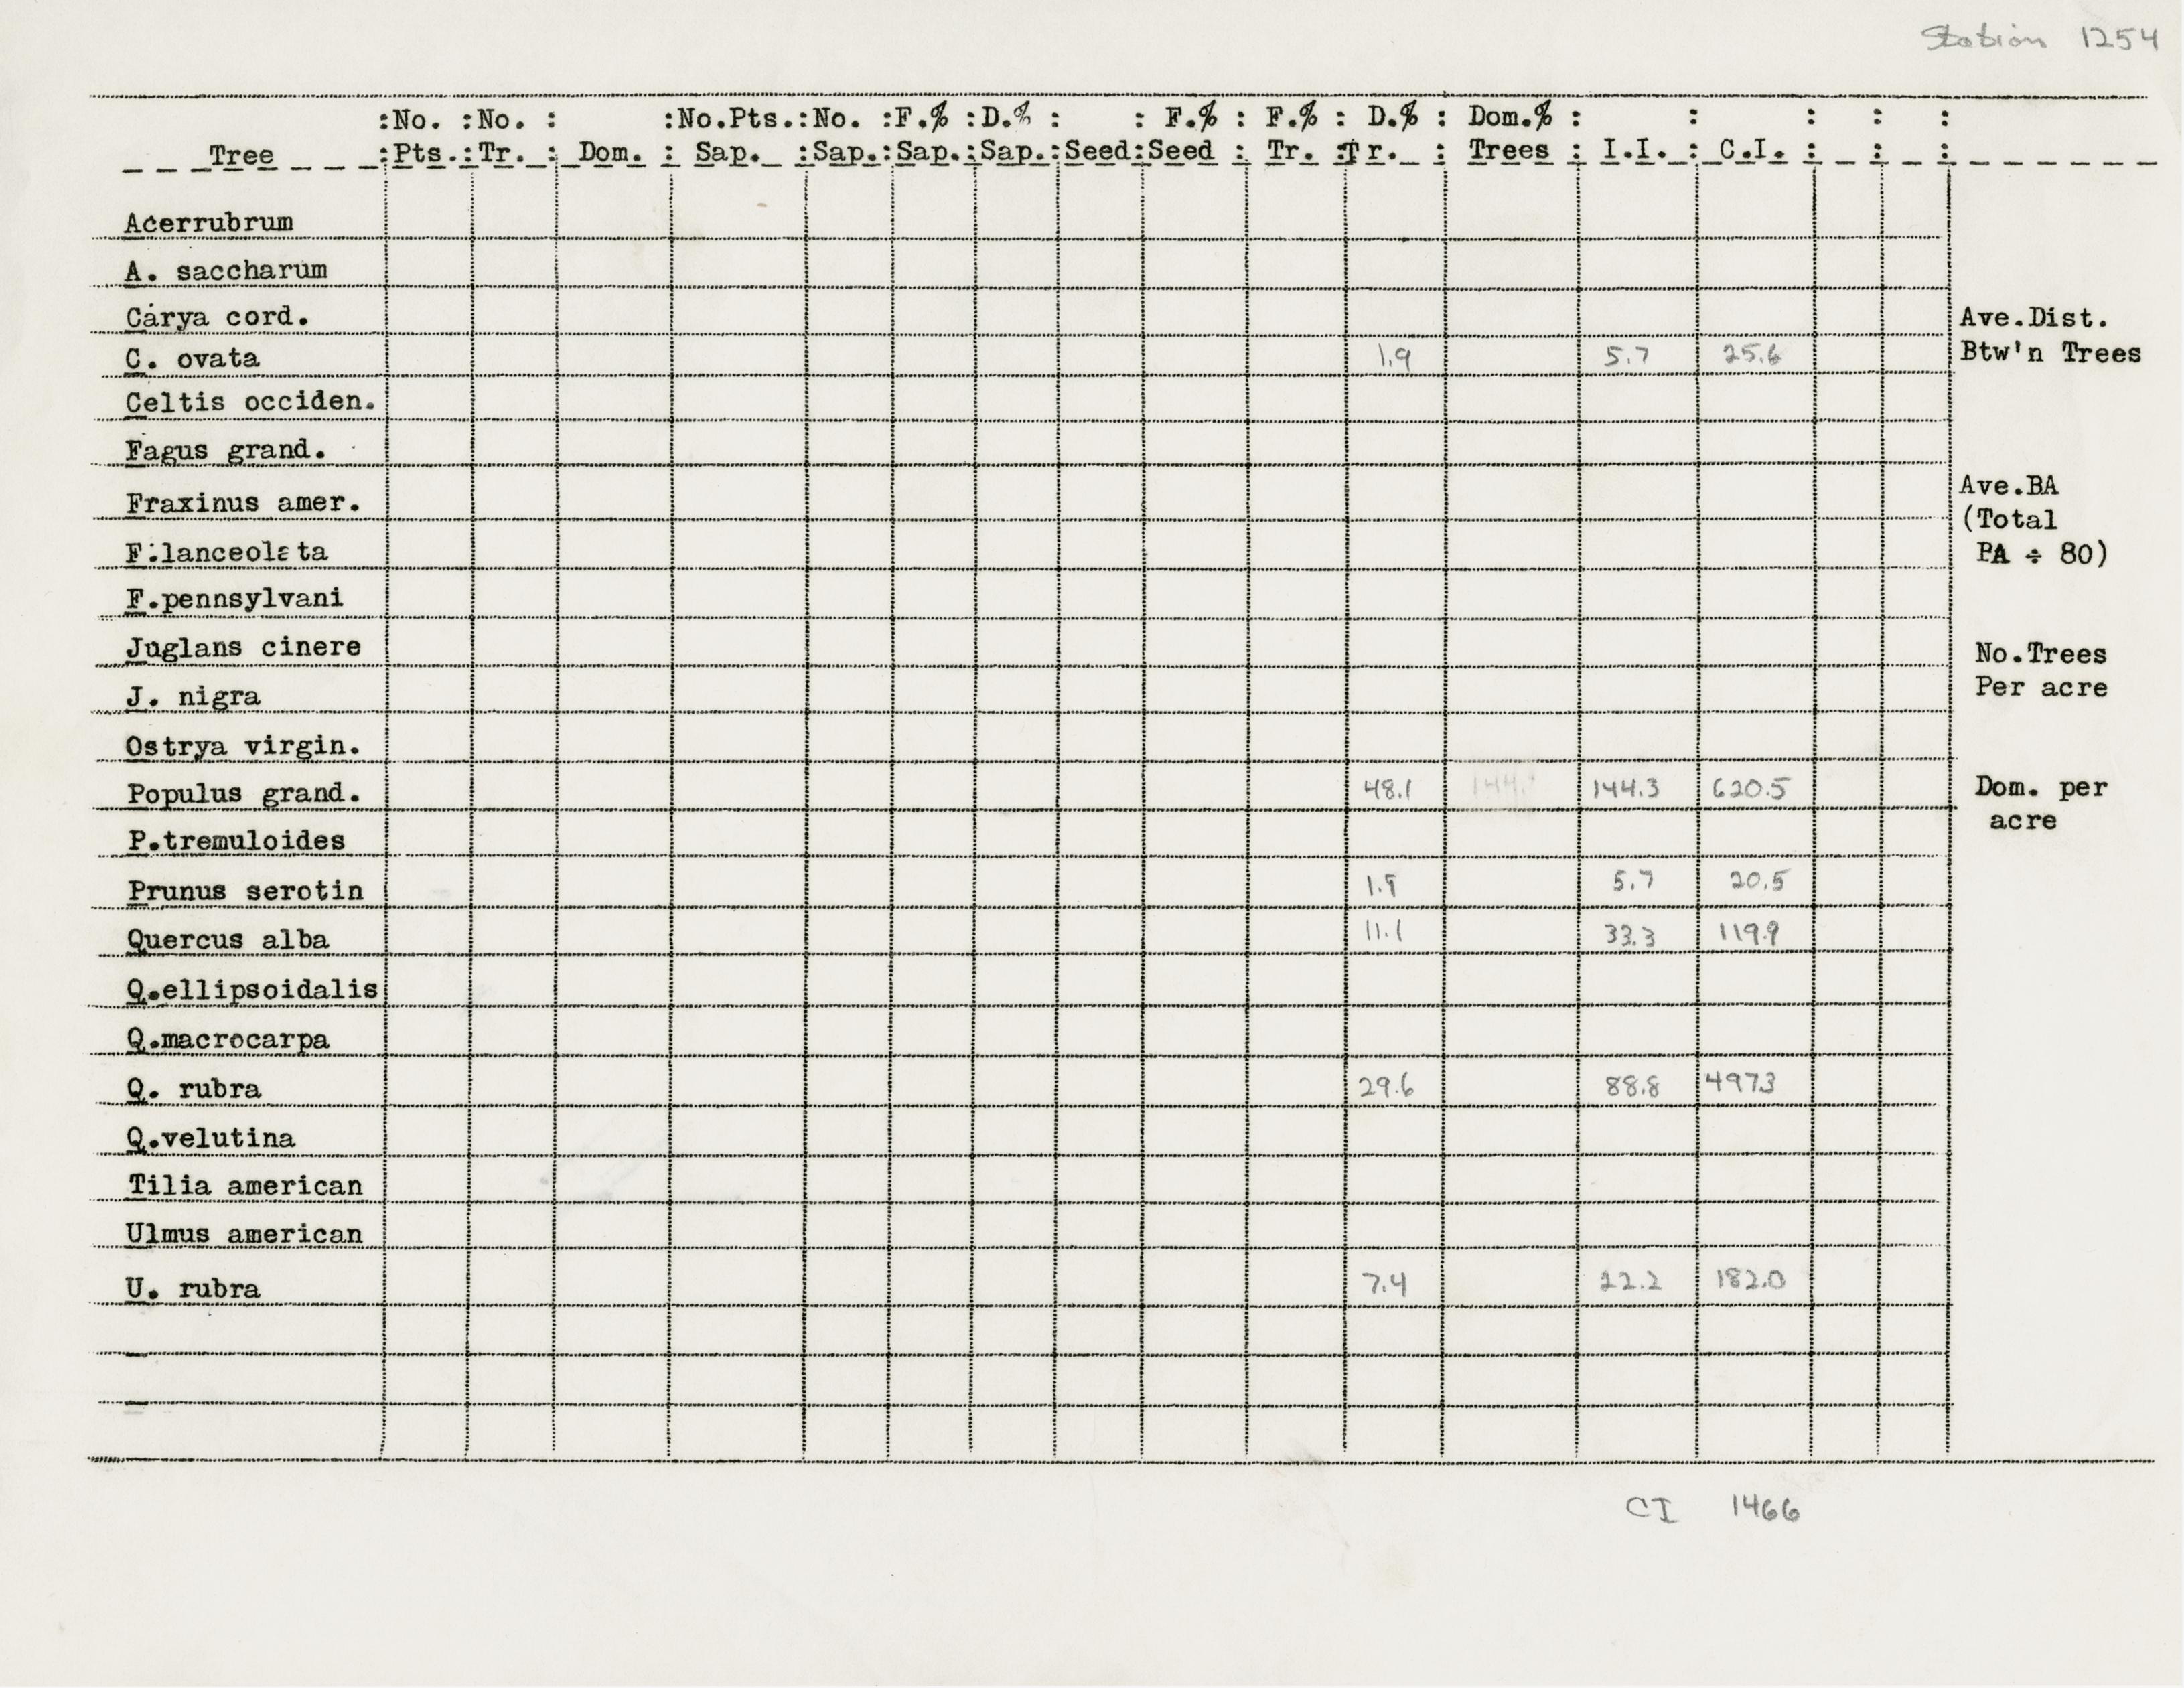 Station 1254
:No. :No. : :No.Pts.:No. :F.% :D.% : : F.% : F.% : D.% : Dom.% : : : : :
Tree :Pts.:Tr. : Dom. : Sap. :Sap.:Sap.:Sap.:Seed:Seed : Tr. :Tr. : Trees : I.I. : C.I. : : :
Acerrubrum
A. saccharum
Carya cord.
Ave.Dist.
C. ovata 1.9 5.7 25.6 Btw'n Trees
Celtis occiden.
Fagus grand.
Ave.BA
Fraxinus amer.
(Total
F.lanceolata BA ÷ 80)
F.pennsylvani
Juglans cinere No.Trees
Per acre
J. nigra
Ostrya virgin.
Populus grand. 48.1 144.3 620.5 Dom. per
acre
P.tremuloides
Prunus serotin 1.9 5.7 20.5
Quercus alba 11.1 33.3 119.9
Q.ellipsoidalis
Q.macrocarpa
Q. rubra 29.6 88.8 497.3
Q.velutina
Tilia american
Ulmus american
U. rubra 7.4 22.2 182.0
CI 1466